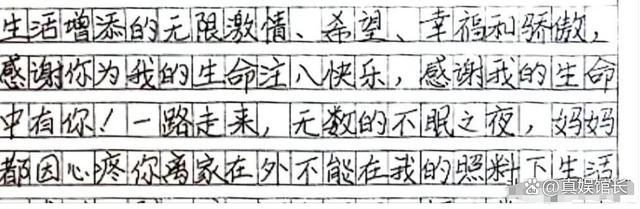 生活增添的无限激情、希望、幸福和骄傲，
感谢你为我的生命注八快乐，感谢我的生命
中有你！一路走来，无数的不眠之夜，妈妈
都因心疼你离家在外不能在我的照料下生活
@真娱馆长